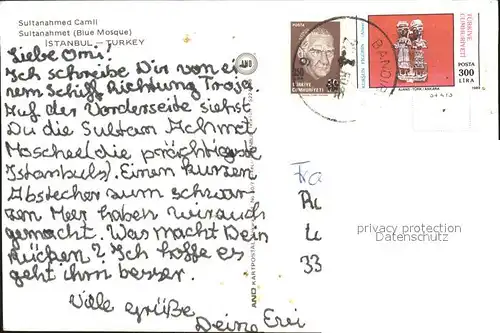 Sultanahmed Camii
Sultanahmet (Blue Mosque)
İSTANBUL - TURKEY
Liebe Omi!
Ich schreibe Dir von ei
nem Schiff Richtung Troja.
Auf der Vorderseite siehst
Du die Sultan Achmet
Moschee (die prächtigste
Istanbuls). Einen kurzen
Abstecher zum schwar-
zen Meer haben wir auch
gemacht. Was macht Dein
Rücken? Ich hoffe es
geht ihm besser.
Viele Grüße
Deine Evi
AND
AND KARTPOSTAL
POSTA
TÜRKİYE
CUMHURİYETİ
50
BANDIR
TÜRKİYE
CUMHURİYETİ
POSTA
300
LİRA
Fra
Ru
33
privacy protection
Datenschutz